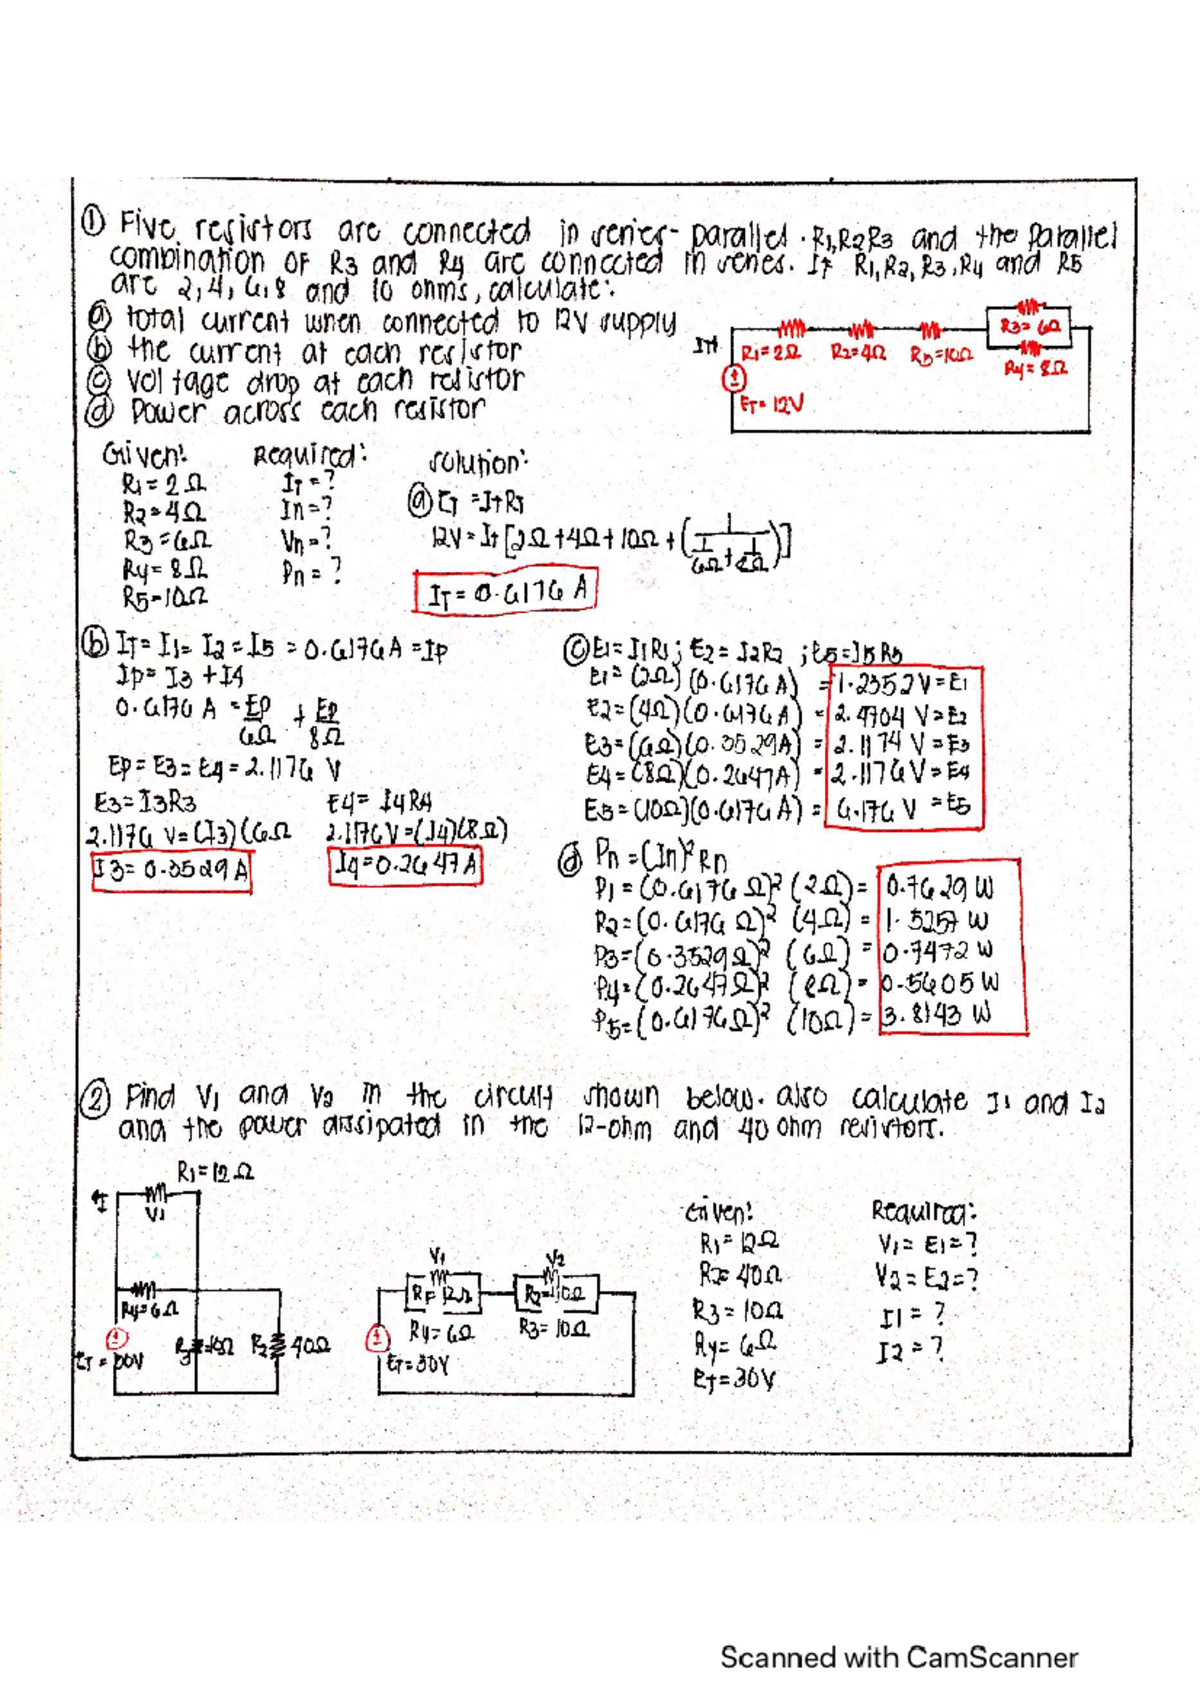 ① Five resistors are connected in series-parallel. R1,R2R3 and the Parallel
combination OF R3 and R4 are connected in series. If R1,R2,R3,R4 and R5
are 2,4,6,8 and 10 ohms, calculate:
ⓐ total current when connected to 12V supply
ⓑ the current at each resistor
ⓒ voltage drop at each resistor
ⓓ Power across each resistor
IT↑
R1=2Ω R2=4Ω R5=10Ω
R3=6Ω
R4=8Ω
ET=12V
Given: Required: solution:
R1=2Ω IT=?
R2=4Ω In=?
R3=6Ω Vn=?
R4=8Ω Pn=?
R5=10Ω
ⓐ ET=ITRT
12V=IT[2Ω+4Ω+10Ω+(1/(1/6Ω+1/8Ω))]
IT=0.6176 A
ⓑ IT=I1=I2=I5=0.6176A=IP
IP=I3+I4
0.6176 A=EP/6Ω+EP/8Ω
EP=E3=E4=2.1176 V
E3=I3R3 E4=I4R4
2.1176 V=(I3)(6Ω 2.1176V=(I4)(8Ω)
I3=0.3529A I4=0.2647A
ⓒ E1=I1R1; E2=I2R2 ; E5=I5R5
E1=(2Ω)(0.6176A) =1.2352V=E1
E2=(4Ω)(0.6176A) =2.4704 V=E2
E3=(6Ω)(0.3529A) =2.1174 V=E3
E4=(8Ω)(0.2647A) =2.1176V=E4
E5=(10Ω)(0.6176A)=6.176 V =E5
ⓓ Pn=(In)²Rn
P1=(0.6176Ω)²(2Ω)=0.7629 W
P2=(0.6176Ω)²(4Ω)=1.5257 W
P3=(0.3529Ω)²(6Ω)=0.7472 W
P4=(0.2647Ω)²(8Ω)=0.5605 W
P5=(0.6176Ω)²(10Ω)=3.8143 W
② Find V1 and V2 in the circuit shown below. also calculate I1 and I2
and the power dissipated in the 12-ohm and 40 ohm resistors.
R1=12Ω
I
V1
R4=6Ω
ET=30V
R3=10Ω R2=40Ω
V1 V2
R1=12Ω R2=40Ω
R4=6Ω R3=10Ω
ET=30V
Given: Required:
R1=12Ω V1=E1=?
R2=40Ω V2=E2=?
R3=10Ω I1=?
R4=6Ω I2=?
ET=30V
Scanned with CamScanner